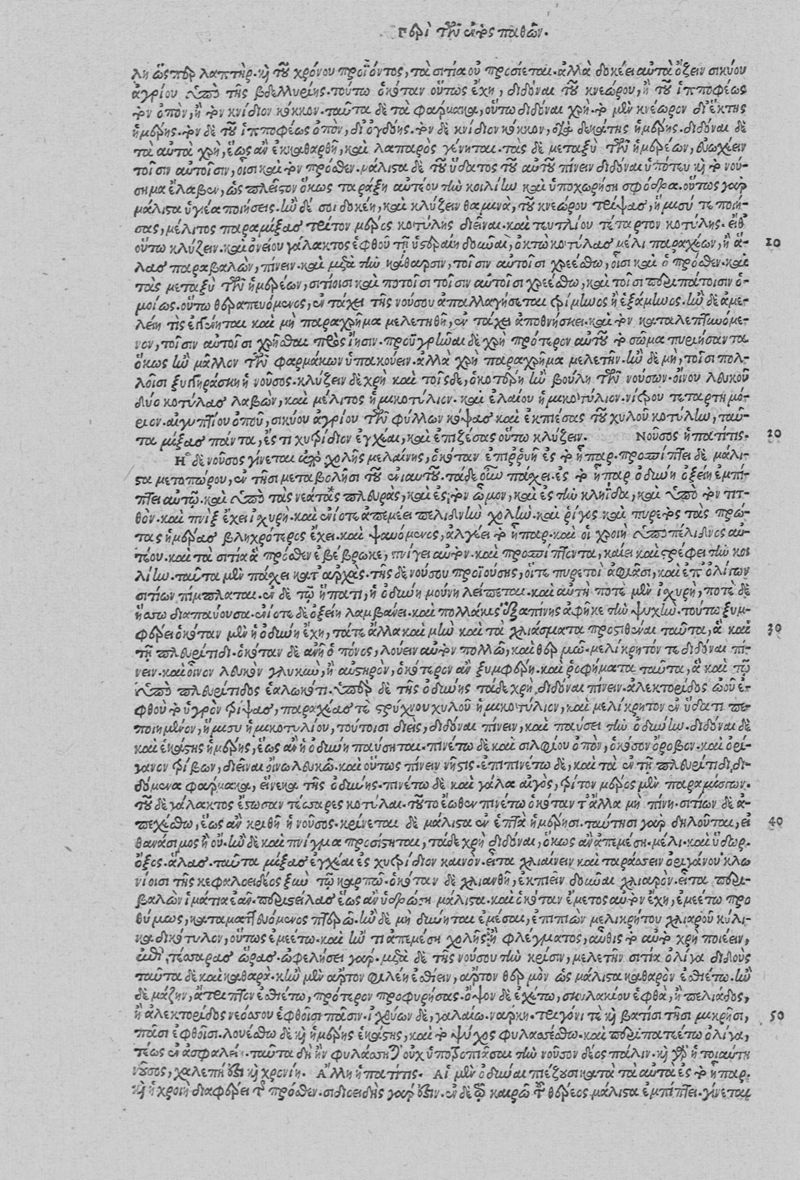 Περὶ τῶν ἐντὸς παθῶν.
λη ὥσπερ λαπτὴρ. καὶ τοῦ χρόνου προϊόντος, τὰ σιτία οὐ προσίεται. ἀλλὰ δοκέει αὐτὰ ὄζειν σικύου
ἀγρίου ὑπὸ τῆς βδελλυρίης. τούτῳ ὁκόταν οὕτως ἔχῃ, διδόναι τοῦ κνεώρου, ἢ τοῦ ἱπποφέως
τὸν ὀπὸν, ἢ τὸν κνίδιον κόκκον. ταῦτα δὲ τὰ φάρμακα, οὕτω διδόναι χρή. τὸ μὲν κνέωρον δι' ἕκτης
ἡμέρης. τὸν δὲ τοῦ ἱπποφέως ὀπὸν, δι' ὀγδόης. τὸν δὲ κνίδιον κόκκον, διὰ δεκάτης ἡμέρης. διδόναι δὲ
τὰ αὐτὰ χρὴ, ἕως ἂν ἐκκαθαρθῇ, καὶ λαπαρὸς γένηται. τὰς δὲ μεταξὺ τῶν ἡμερέων, εὐωχέειν
τοῖσιν αὐτοῖσιν, οἷσι καὶ τὸν πρόσθεν. μάλιστα δὲ τοῦ ὕδατος τοῦ αὐτοῦ πίνειν διδόναι ὑπότευ καὶ τὸ νού-
σημα ἔλαβεν, ὡς πλεῖστον ὅκως ταράξῃ αὐτέου τὴν κοιλίην καὶ ὑποχωρήσῃ σφόδρα. οὕτως γὰρ
μάλιστα ὑγιέα ποιήσεις. ἢν δέ σοι δοκέῃ, καὶ κλύζειν θαμινὰ, τοῦ κνεώρου τρίψας, ἥμισύ τε ποιή-
σας, μέλιτος παραμίξας τρίτον μέρος κοτύλης διεῖναι. καὶ τευτλίου τέταρτον κοτύλης. εἶθ'
οὕτω κλύζειν. καὶ ὀνείου γάλακτος ἑφθοῦ τῇ ὑστεραίῃ δοῦναι, ὀκτὼ κοτύλας μέλι παραχέων, ἢ ἅ- 10
λας παραβαλὼν, πίνειν. καὶ μετὰ τὴν κάθαρσιν, τοῖσιν αὐτοῖσι χρεέσθω, οἷσι καὶ ὁ πρόσθεν. καὶ
τὰς μεταξὺ τῶν ἡμερέων, σιτίοισι καὶ ποτοῖσι τοῖσιν αὐτοῖσι χρεέσθω, καὶ τοῖσι περιπάτοισιν ὁ-
μοίως. οὕτω θεραπευόμενος, ἐν τάχει τῆς νούσου ἀπαλλαγήσεται τρίμηνος ἢ ἑξάμηνος. ἢν δὲ ἀμε-
λέῃ τις ἐπὴν ᾖται καὶ μὴ παραχρῆμα μελετηθῇ, ἐν τάχει ἀποθνήσκει. καὶ τὸν καταλεπτυνόμε-
νον, τοῖσιν αὐτοῖσι χρῆσθαι πρὸς ἴησιν. προϋγρῶσαι δὲ χρὴ πρότερον αὐτοῦ τὸ σῶμα πυριήσαντα
ὅκως ἢν μᾶλλον τῶν φαρμάκων ὑπακούειν. ἀλλὰ χρὴ παραχρῆμα μελετῆν. ἢν δὲ μὴ, τοῖσι πολ-
λοῖσι ξυγκηράσκῃ ἡ νοῦσος. κλύζειν δὲ χρὴ καὶ τοῖσδε, ὁκοτέρῃ ἢν βούλῃ τῶν νούσων. οἴνου λευκοῦ
δύο κοτύλας λαβὼν, καὶ μέλιτος ἡμικοτύλιον. καὶ ἐλαίου ἡμικοτύλιον. νίτρου τετάρτη μό-
ριον. αἰγυπτίου ὀποῦ, σικύου ἀγρίου τῶν φύλλων κόψας καὶ ἐκπιέσας τοῦ χυλοῦ κοτύλην, ταῦ-
τα μίξας πάντα, ἔς τι χυτρίδιον ἐγχέαι, καὶ ἐπιζέσας οὕτω κλύζειν. Νοῦσος ἡπατῖτις. 20
Ἡ δὲ νοῦσος γίνεται ἀπὸ χολῆς μελαίνης, ὁκόταν ἐπιῤῥυῇ ἐς τὸ ἧπαρ. προσπίπτει δὲ μάλι-
στα μετοπώρου, ἐν τῇσι μεταβολῇσι τοῦ ἐνιαυτοῦ. τάδε οὖν πάσχει. ἐς τὸ ἧπαρ ὀδύνη ὀξείη ἐμπί-
πτει αὐτῷ. καὶ ὑπὸ τὰς νεάτας πλευρὰς, καὶ ἐς τὸν ὦμον, καὶ ἐς τὴν κληῗδα, καὶ ὑπὸ τὸν τιτ-
θόν. καὶ πνὶξ ἔχει ἰσχυρή. καὶ ἐνίοτε ἀπεμέει πελιδνὴν χολήν. καὶ ῥῖγος καὶ πυρετὸς τὰς πρώ-
τας ἡμέρας βληχρότερος ἔχει. καὶ ψαυόμενος, ἀλγέει τὸ ἧπαρ. καὶ οἱ χροιὴ ὑποπέλιδνος αὐ-
τέου. καὶ τὰ σιτία ἃ πρόσθεν ἐβεβρώκει, πνίγει αὐτόν. καὶ προσπίπτοντα, καίει καὶ στρέφει τὴν κοι-
λίην. ταῦτα μὲν πάσχει κατ' ἀρχάς. τῆς δὲ νούσου προϊούσης, οἵτε πυρετοὶ ἀφιᾶσι, καὶ ἐπ' ὀλίγων
σιτίων πίμπλαται. ἐν δὲ τῷ ἥπατι, ἡ ὀδύνη μούνη λείπεται. καὶ αὐτὴ ποτὲ μὲν ἰσχυρὴ, ποτὲ δὲ
ἥσσω διαπαύουσα. ἐνίοτε δὲ ὀξείη λαμβάνει. καὶ πολλάκις ἐξαπίνης ἀφῆκε τὴν ψυχήν. τούτῳ ξυμ-
φέρει ὁκόταν μὲν ἡ ὀδύνη ἔχῃ, τά τε ἄλλα καὶ μὴν καὶ τὰ χλιάσματα προστιθέναι ταῦτα, ἃ καὶ 30
τῇ πλευρίτιδι. ὁκόταν δὲ ἀνῇ ὁ πόνος, λούειν αὐτὸν πολλῷ, καὶ θερμῷ. μελίκρητόν τε διδόναι πί-
νειν. καὶ οἶνον λευκὸν γλυκὺν, ἢ αὐστηρὸν, ὁκότερον ἂν ξυμφέρῃ. καὶ ῥοφήματα ταῦτα, ἃ καὶ τῷ
ὑπὸ πλευρίτιδος ἑαλωκότι. ὑπὲρ δὲ τῆς ὀδύνης τάδε χρὴ διδόναι πίνειν. ἀλεκτορίδος ὠοῦ ἑ-
φθοῦ τὸ ὑγρὸν τρίψας, παραχέας τε στρύχνου χυλοῦ ἡμικοτύλιον, καὶ μελίκρητον ἐν ὕδατι πε-
ποιημένον, ἥμισυ ἡμικοτυλίου, τούτοισι διεὶς, διδόναι πίνειν, καὶ παύσει τὴν ὀδύνην. διδόναι δὲ
καὶ ἑκάστης ἡμέρης, ἕως ἂν ἡ ὀδύνη παύσηται. πινέτω δὲ καὶ σιλφίου ὀπὸν, ὁκόσον ὄροβον. καὶ ὀρί-
γανον τρίβων, διεῖναι οἴνῳ λευκῷ. καὶ οὕτως πίνειν νῆστις. ἐπιπινέτω δὲ, καὶ τὰ ἐν τῇ πλευρίτιδι δι-
δόμενα φάρμακα, εἵνεκα τῆς ὀδύνης. πινέτω δὲ καὶ γάλα αἰγὸς, τρίτον μέρος μὲν παραμίσγων.
τοῦ δὲ γάλακτος ἔστωσαν τέσσαρες κοτύλαι. τοῦτο ἕωθεν πινέτω ὁκόταν τ' ἄλλα μὴ πίνῃ. σιτίων δὲ ἀ-
πεχέσθω, ἕως ἂν κριθῇ ἡ νοῦσος. κρίνεται δὲ μάλιστα ἐν ἑπτὰ ἡμέρῃσι. ταύτῃσι γὰρ δηλοῦται, εἰ 40
θανάσιμος ἢ οὔ. ἢν δὲ καὶ πνίγμα προσίστηται, τάδε χρὴ διδόναι, ὅκως ἀναπεμέσῃ. μέλι. καὶ ὕδωρ.
ὄξος. ἅλας. ταῦτα μίξας ἐγχέαι ἐς χυτρίδιον καινόν. εἶτα χλιαίνειν καὶ ταράσσειν ὀριγάνου κλω
νίοισι τῆς κεφαλοειδέος ξὺν τῷ καρπῷ. ὁκόταν δὲ χλιανθῇ, ἐκπιεῖν δοῦναι χλιαρόν. εἶτα περι-
βαλὼν ἱμάτια ἐᾶν. περιστεῖλας ἕως ἂν ὑδρώσῃ μάλιστα. καὶ ὁκόταν ἔμετος αὐτὸν ἔχῃ, ἐμεέτω προ
θύμως, καταματτευόμενος πτερῷ. ἢν δὲ μὴ δύνηται ἐμέσαι, ἐπιπιὼν μελικρήτου χλιαροῦ κύλι-
κα δικότυλον, οὕτως ἐμεέτω. καὶ ἢν τι ἀπεμέσῃ χολῆς ἢ φλέγματος, αὖθις τὸ αὐτὸ χρὴ ποιέειν,
ἐσθίειν, τέσσαρας ὥρας. ὠφελήσει γάρ. μετὰ δὲ τῆς νούσου τὴν κρίσιν, μελετῆν σιτία ὀλίγα διδοὺς
ταῦτα δὲ καὶ καθαρά. κἢν μὲν ἄρτον φιλέῃ ἐσθίειν, ἄρτον θερμὸν ὡς μάλιστα καθαρὸν ἐσθιέτω. ἢν
δὲ μᾶζην, ἄτριπτον ἐσθιέτω, πρότερον προφυρήσας. ὄψον δὲ ἐχέτω, σκυλακίου ἑφθὰ, ἢ πελιάδος,
ἢ ἀλεκτορίδος νεοσσοῦ ἑφθοῖσι πᾶσιν. ἰχθύων δὲ, γαλαίῳ. νάρκῃ. τρυγόνι τε καὶ βατίσι τῇσι μικρῇσι, 50
πᾶσι ἑφθοῖσι. λουέσθω δὲ καὶ ἡμέρης ἑκάστης, καὶ τὸ ψῦχος φυλασσέσθω. καὶ περιπατείτω ὀλίγα,
τέως ἐν ἀσφαλεῖ. ταῦτα δὴ ἢν φυλάσσηται οὐχ ὑποτροπιάσαι τὴν νοῦσον δέος πάλιν. καὶ γὰρ ἡ τοιαύτη
νοῦσος, χαλεπή ἐστι καὶ χρονίη. Ἄλλη ἡπατῖτις. Αἱ μὲν ὀδύναι πιέζουσι κατὰ τὰ αὐτὰ ἐς τὸ ἧπαρ.
καὶ ἡ χροιὴ διαφέρει τῆς πρόσθεν. σιδιοειδὴς γάρ ἐστιν. ἐν δὲ τῷ καιρῷ τοῦ θέρεος μάλιστα ἐμπίπτει. γίνεται